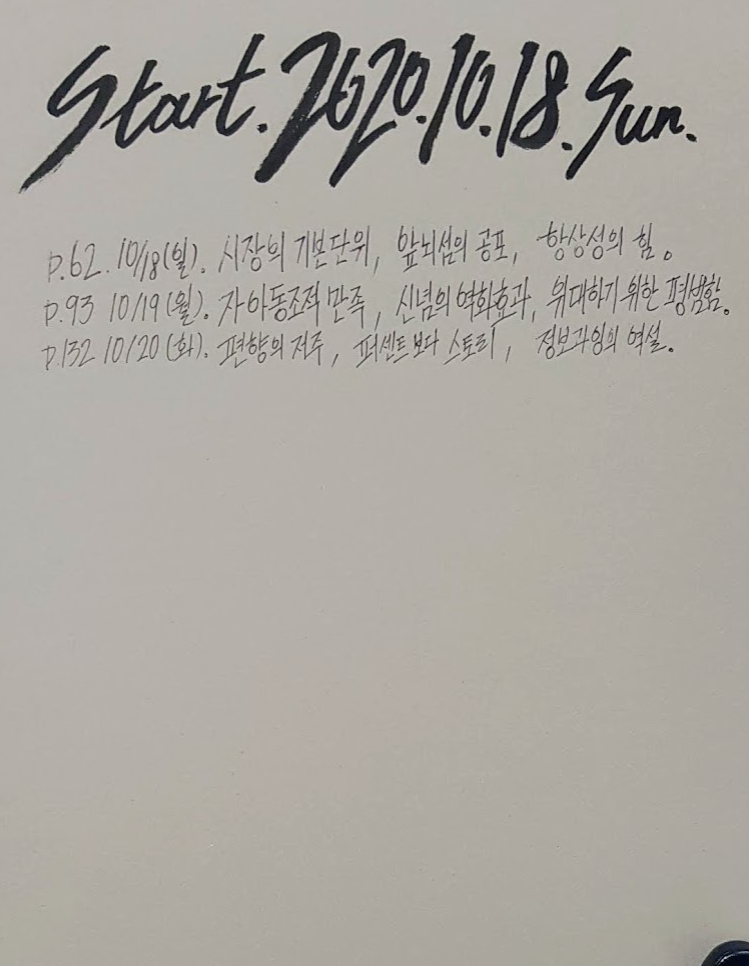 Start. 2020.10.18. Sun.
p.62. 10/18(일). 시장의 기본단위, 앞뇌섬의 공포, 항상성의 힘。
p.93 10/19(월). 자아동조적 만족, 신념의 역화효과, 위대하기 위한 평범함。
p.132 10/20(화). 편향의 저주, 퍼센트보다 스토리, 정보과잉의 역설。